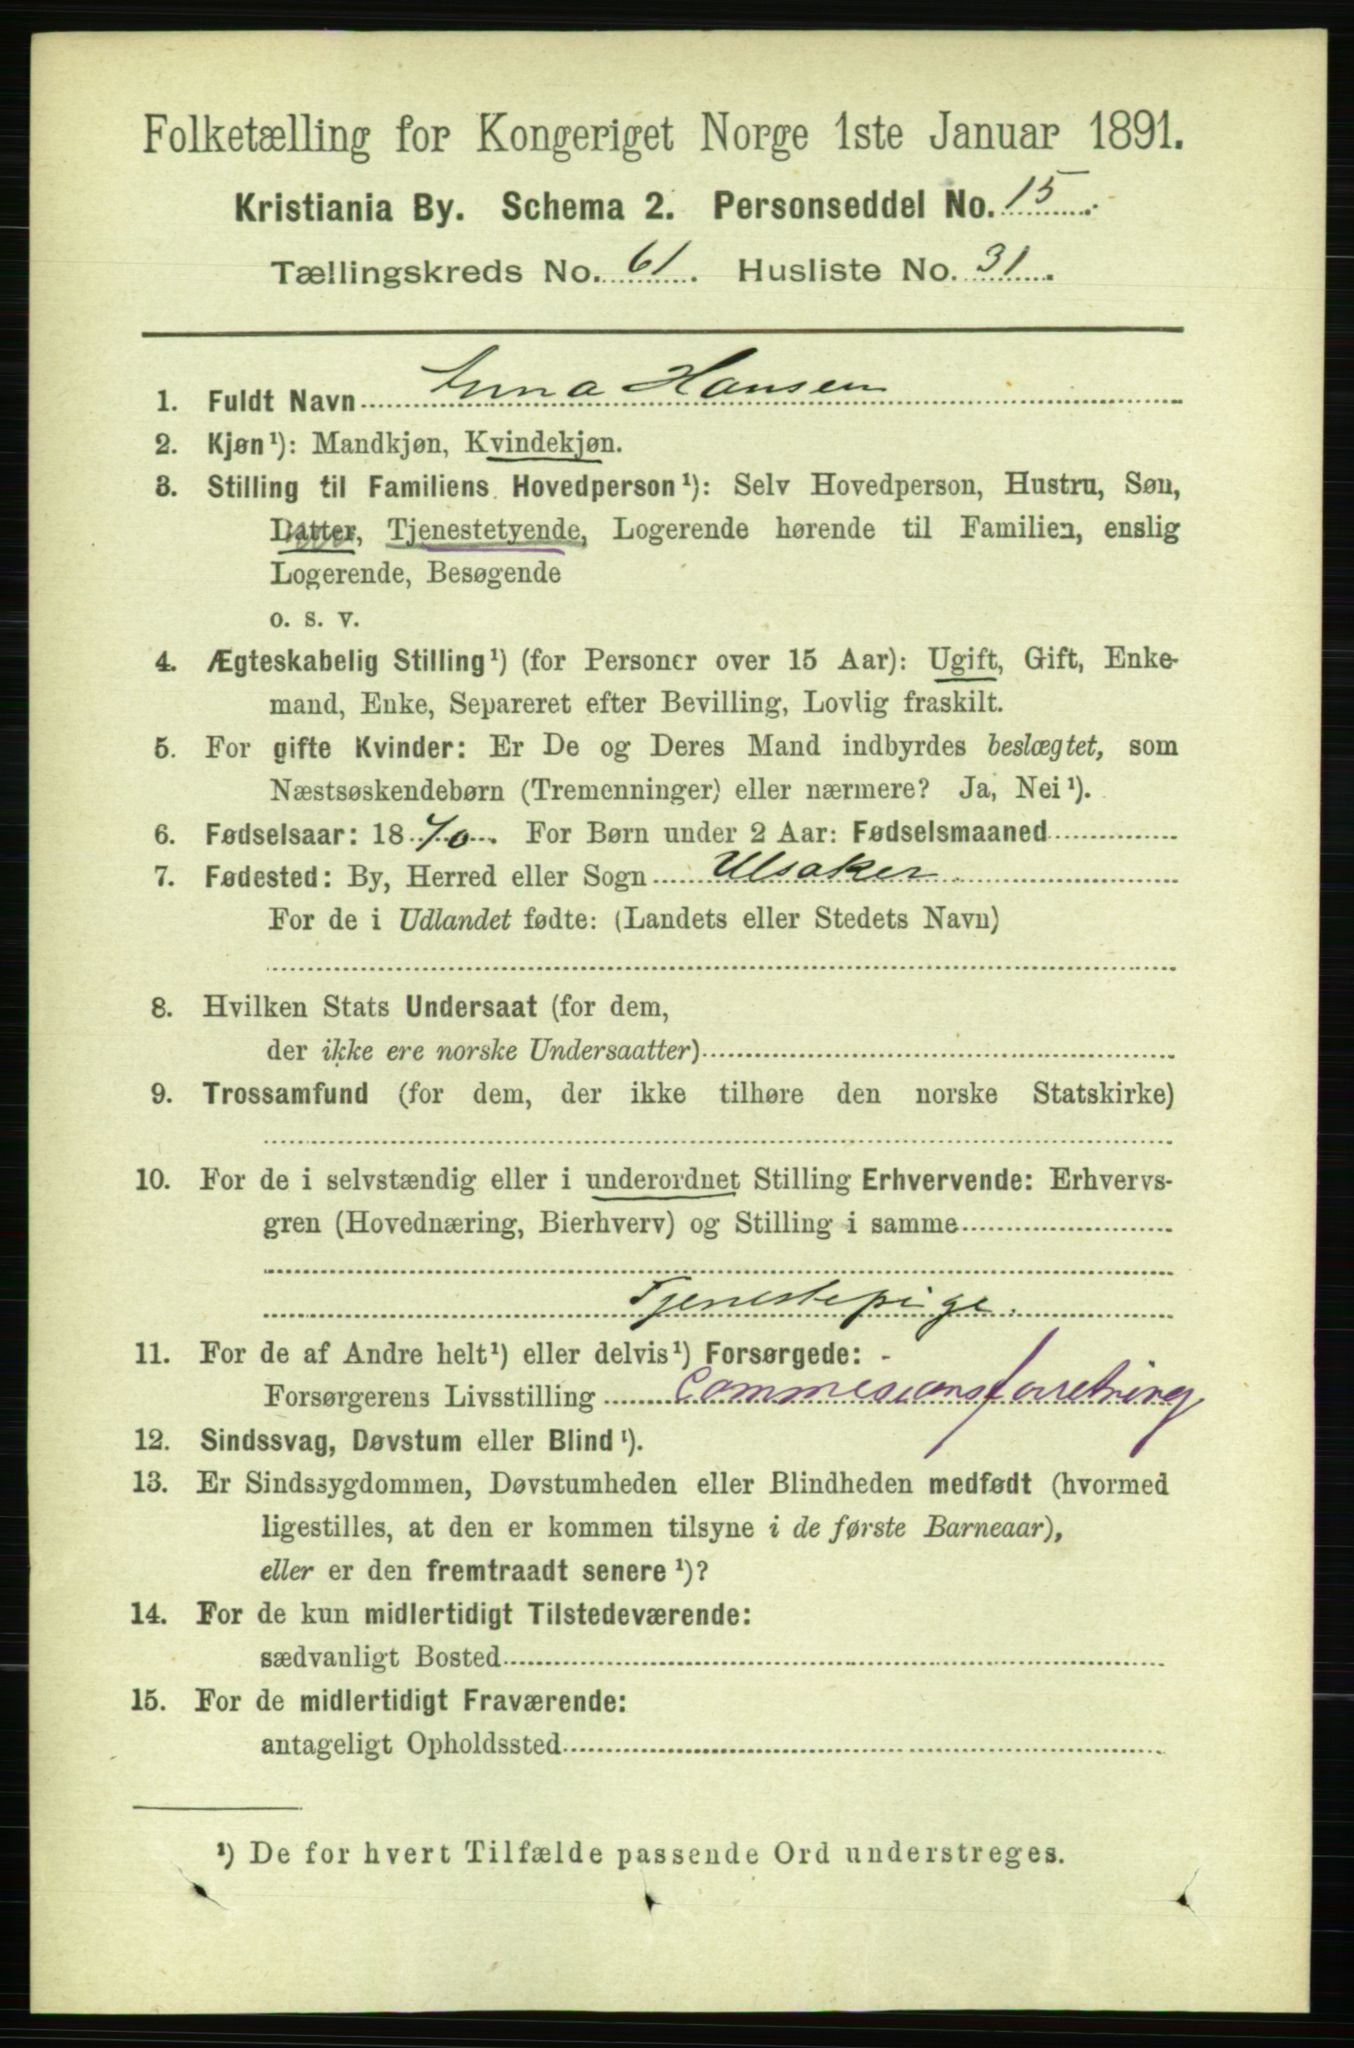 Folketælling for Kongeriget Norge 1ste Januar 1891.
Kristiania By. Schema 2. Personseddel No. 15.
Tællingskreds No. 61. Husliste No. 31.
1. Fuldt Navn Erna Hansen
2. Kjøn¹): Mandkjøn, Kvindekjøn.
3. Stilling til Familiens Hovedperson¹): Selv Hovedperson, Hustru, Søn,
Datter, Tjenestetyende, Logerende hørende til Familien, enslig
Logerende, Besøgende
o. s. v.
4. Ægteskabelig Stilling¹) (for Personer over 15 Aar): Ugift, Gift, Enke-
mand, Enke, Separeret efter Bevilling, Lovlig fraskilt.
5. For gifte Kvinder: Er De og Deres Mand indbyrdes beslægtet, som
Næstsøskendebørn (Tremenninger) eller nærmere? Ja, Nei¹).
6. Fødselsaar: 1870. For Børn under 2 Aar: Fødselsmaaned
7. Fødested: By, Herred eller Sogn Ulsaker
For de i Udlandet fødte: (Landets eller Stedets Navn)
8. Hvilken Stats Undersaat (for dem,
der ikke ere norske Undersaatter)
9. Trossamfund (for dem, der ikke tilhøre den norske Statskirke)
10. For de i selvstændig eller i underordnet Stilling Erhvervende: Erhvervs-
gren (Hovednæring, Bierhverv) og Stilling i samme
Tjenestepige.
11. For de af Andre helt¹) eller delvis¹) Forsørgede: -
Forsørgerens Livsstilling Commesionsforretning
12. Sindssvag, Døvstum eller Blind¹).
13. Er Sindssygdommen, Døvstumheden eller Blindheden medfødt (hvormed
ligestilles, at den er kommen tilsyne i de første Barneaar),
eller er den fremtraadt senere¹)?
14. For de kun midlertidigt Tilstedeværende:
sædvanligt Bosted
15. For de midlertidigt Fraværende:
antageligt Opholdssted
¹) De for hvert Tilfælde passende Ord understreges.